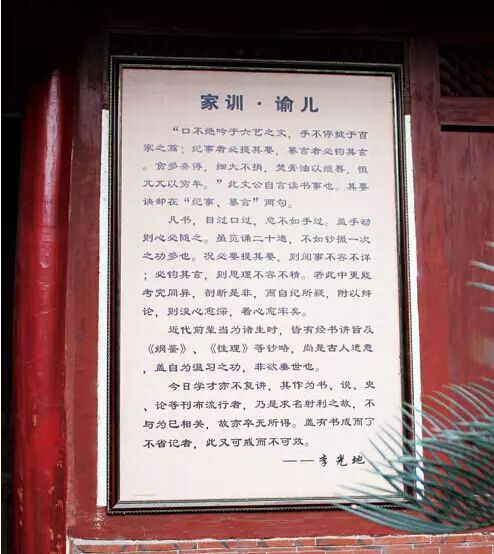 家训·谕儿
“口不绝吟于六艺之文，手不停披于百
家之篇；纪事者必提其要，纂言者必钩其玄。
贪多务得，细大不捐，焚膏油以继晷，恒
兀兀以穷年。”此文公自言读书事也。其要
诀却在“纪事、纂言”两句。
凡书，目过口过，总不如手过。盖手动
则心必随之。虽览诵二十遍，不如钞撮一次
之功多也。况必要提其要，则阅事不容不详
；必钩其玄，则思理不容不精。若此中更能
考究同异，剖断是非，而自纪所疑，附以辩
论，则浚心愈深，着心愈牢矣。
近代前辈当为诸生时，皆有经书讲旨及
《纲鉴》、《性理》等钞略，尚是古人遗意，
盖自为温习之功，非欲垂世也。
今日学才亦不复讲，其作为书、说、史
、论等刊布流行者，乃是求名射利之故，不
与为已相关，故亦卒无所得。盖有书成而了
不省记者，此又可戒而不可效。
——李光地